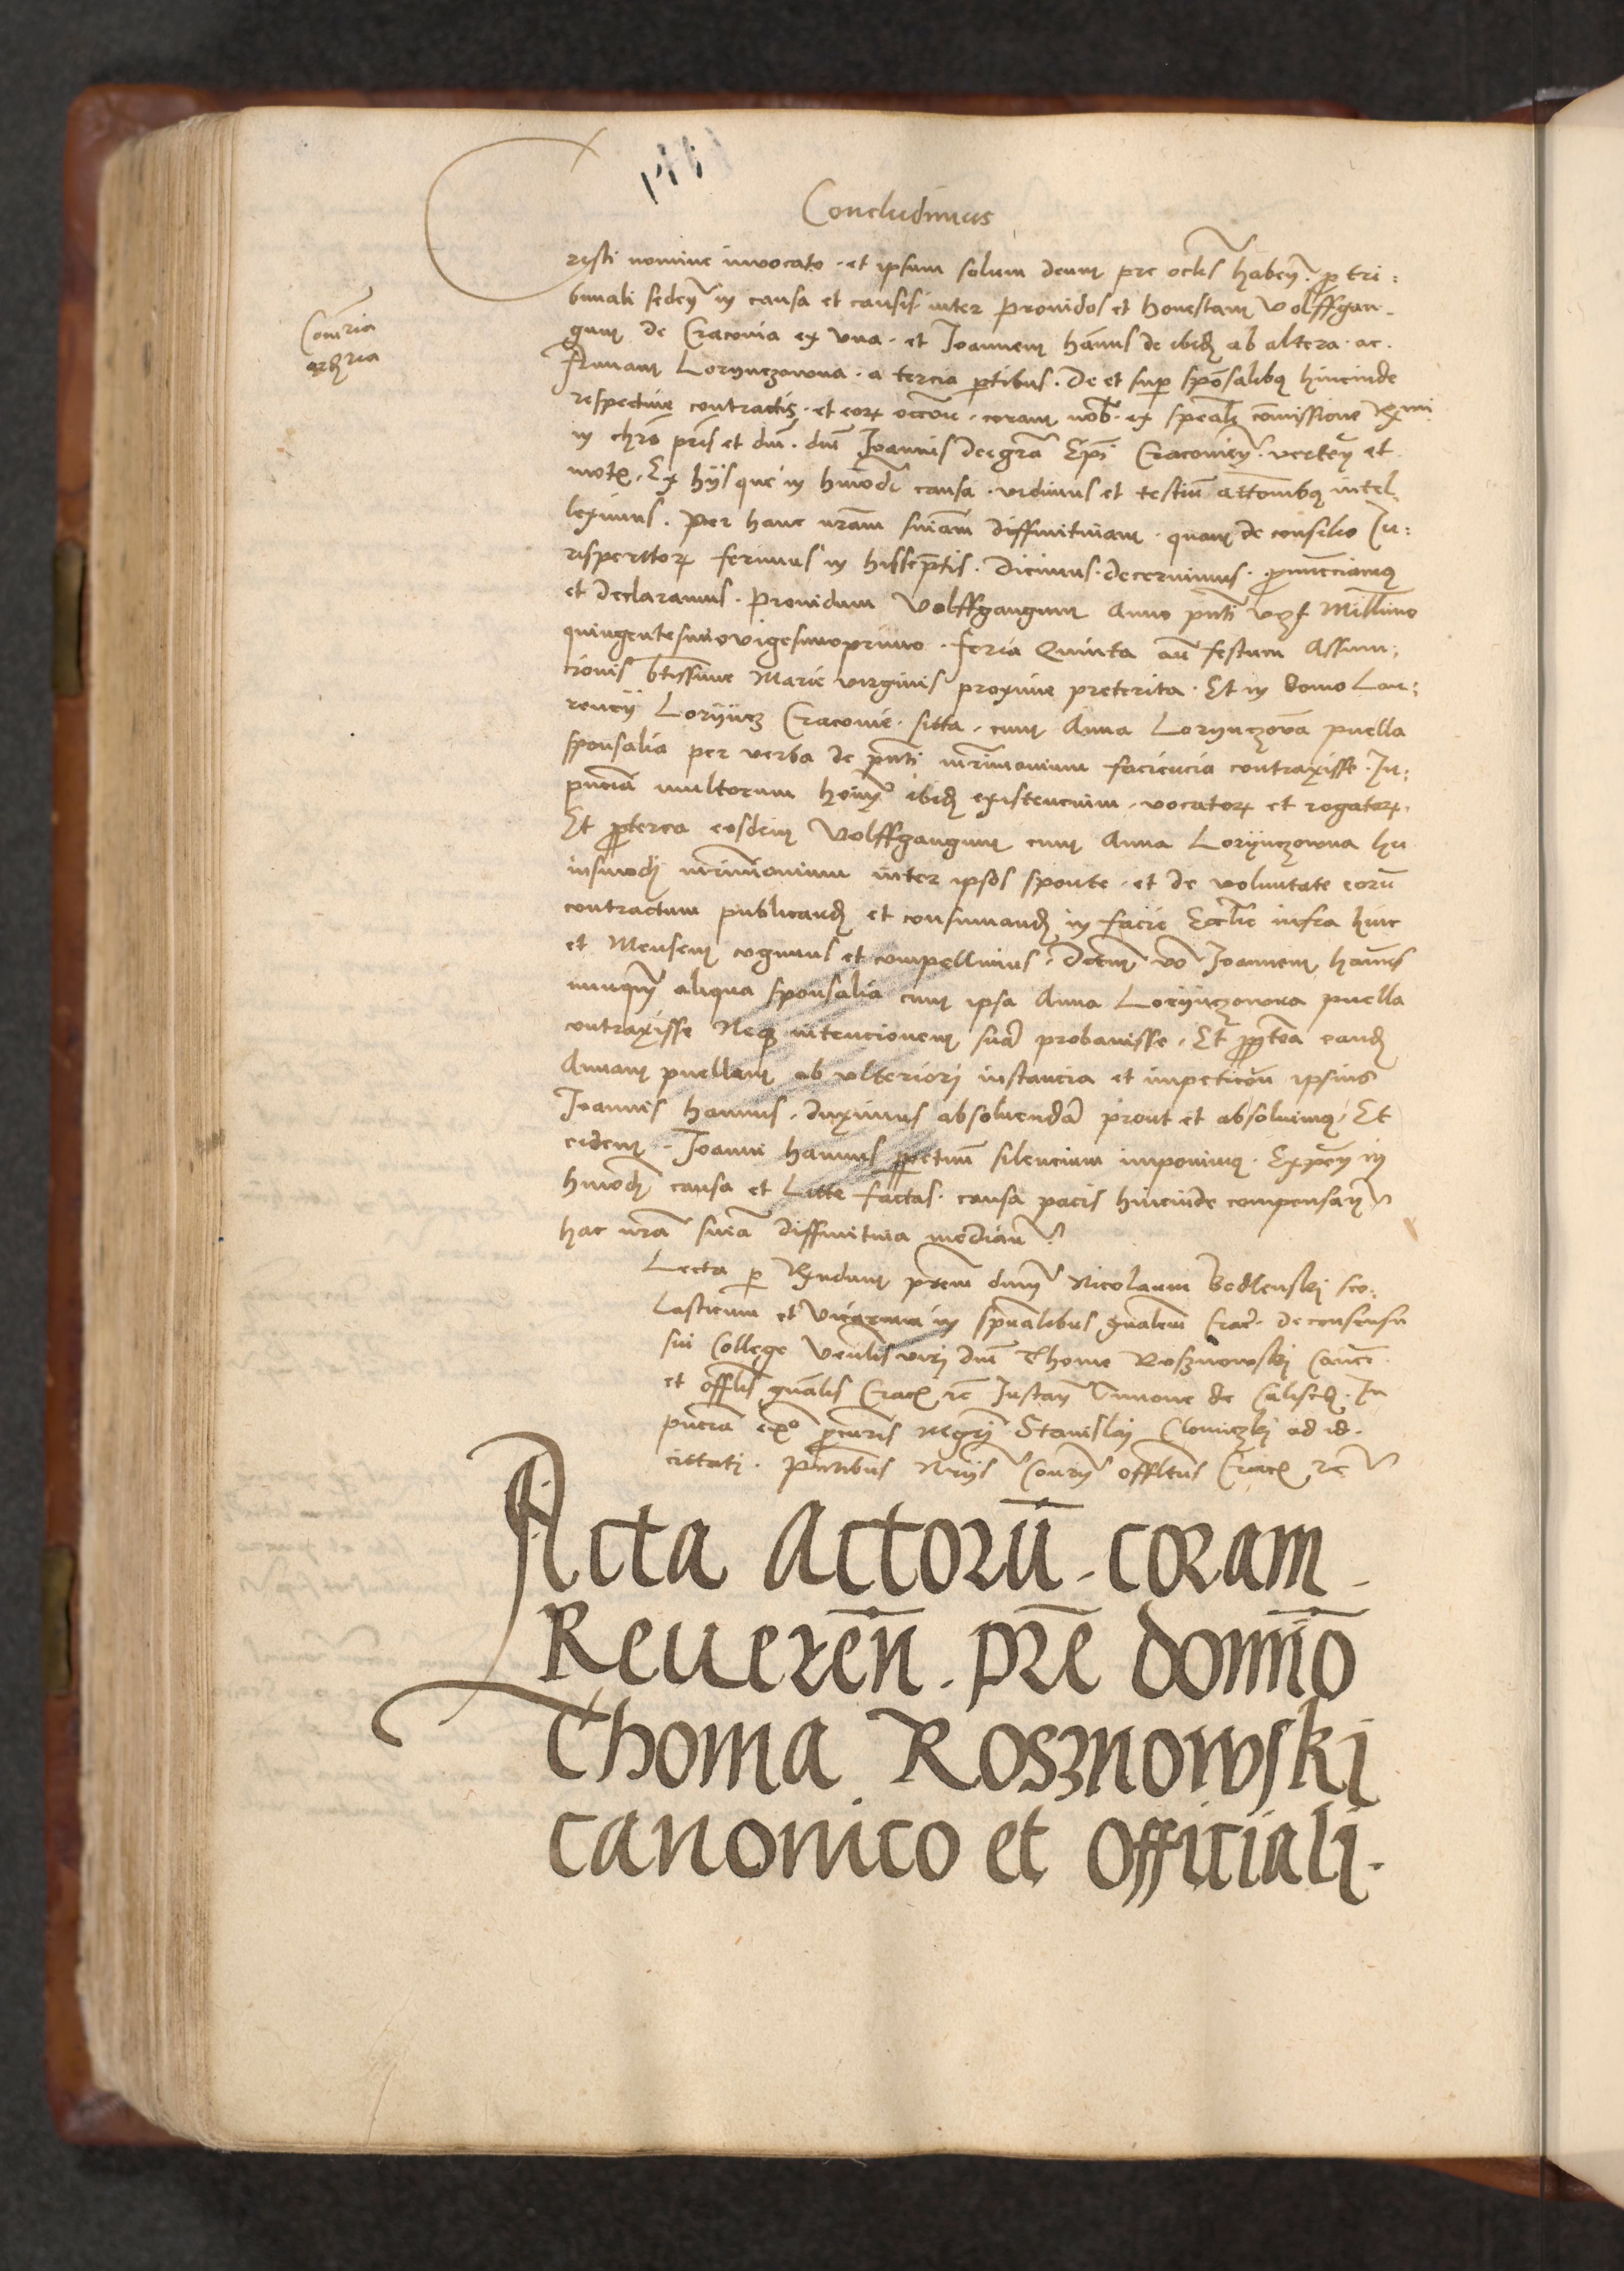 Concludimus
risti nomine invocato · et ipsum solum deum pre oclis habeñ · p tri:
bunali sedeñ in causa et causis inter providos et honestam Volffgan-
gum de Cracovia ex una · et Joannem hannus de ibidẽ ab altera · ac ·
Annam Lorynczowna · a tercia ptibus · De et sup spõsalibq hincinde
respective contractis · et eorꝝ occoñ · coram nob · ex speali comissione Rmi
in chro pris et dni · dni Joannis dei gra Epi Cracovieñ · verteñ et
motꝝ · Ex hijs que in hmodi causa · vidimus et testiũ attõnibq intel
leximus · Per hanc nram sniam diffinitivam · quam de consilio Ju:
risperitorꝝ ferimus in his scptis · Dicimus · decernimus · pnucciamq
et declaramus · Providum Volffgangum Anno pnti Millimo
quingentesimovigesimoprimo · feria Quinta añ festum Assum:
cionis btissime Marie virginis proxime preterita · Et in domo Lau:
rencij Loryncz Cracovie · sitta · cum Anna Lorynczowa puella
sponsalia per verba de pnti mrimonium faciencia contraxisse · In
pncia multorum hoim ibidẽ existencium · vocatorꝝ et rogatorꝝ ·
Et pterea eosdem Volffgangum cum Anna Lorynczowna hu
iusmodi mrimonium inter ipsos sponte · et de voluntate eorũ
contractum publicandẽ et consumandẽ in facie Ecclie infra hinc
et Mensem cogimus et compellimus · Dictum vo Joannem hannus
nunqm aliqua sponsalia cum ipsa Anna Lorynczowna puella
contraxisse Neq intencionem suã probavisse · Et pterea eandẽ
Annam puellam ab ulteriori instancia et impeticoñ ipsius
Joannis hannus · duximus absoluendã prout et absoluimq · Et
eidem · Joanni hannus ppetuũ silencium imponimq · Expeñ in
hmodi causa et Litte factas · causa pacis hincinde compensañ
hac nra snia diffinitiva mediañ
Lecta p Rndum prem dnm Nicolaum Bedlenski sco:
lasticum et Vicarium in spualibus gnalem Crac · de consensu
sui College Venlis viri dni Thome Rosznowski Canci ·
et offlis gnalis Cracꝝ rc Instañ Simone de Calisch · In
pncia ex procuris Mgri Stanislaj Cloniczki ad id ·
cittati · Pntibus Nrijs Conrij offltus Cracꝝ rc
Acta Actorũ · coram ·
Reverẽn · pre domino
Thoma Rosznowski
canonico et officiali ·